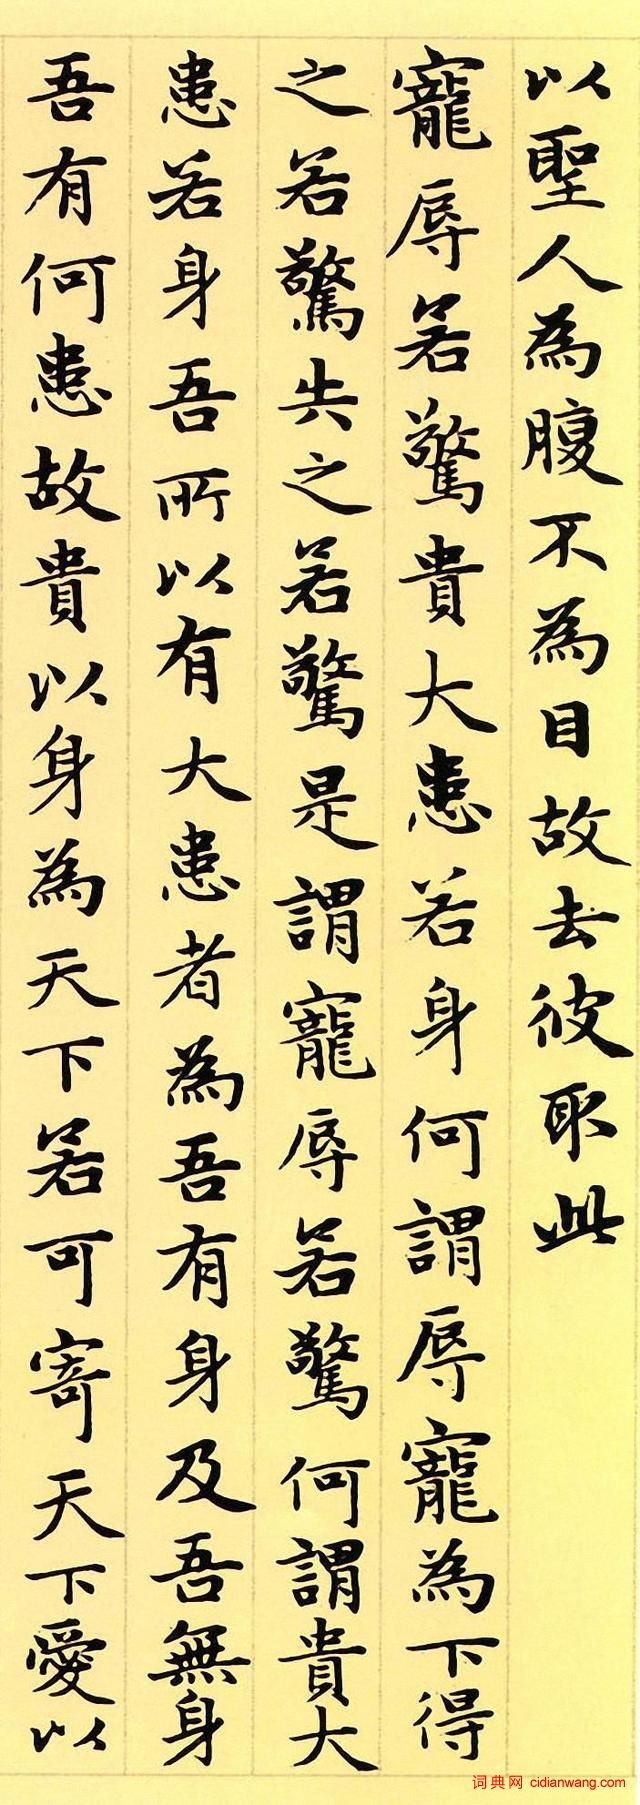 以聖人為腹不為目故去彼取此
寵辱若驚貴大患若身何謂辱寵為下得
之若驚失之若驚是謂寵辱若驚何謂貴大
患若身吾所以有大患者為吾有身及吾無身
吾有何患故貴以身為天下若可寄天下愛以
词典网 cidianwang.com